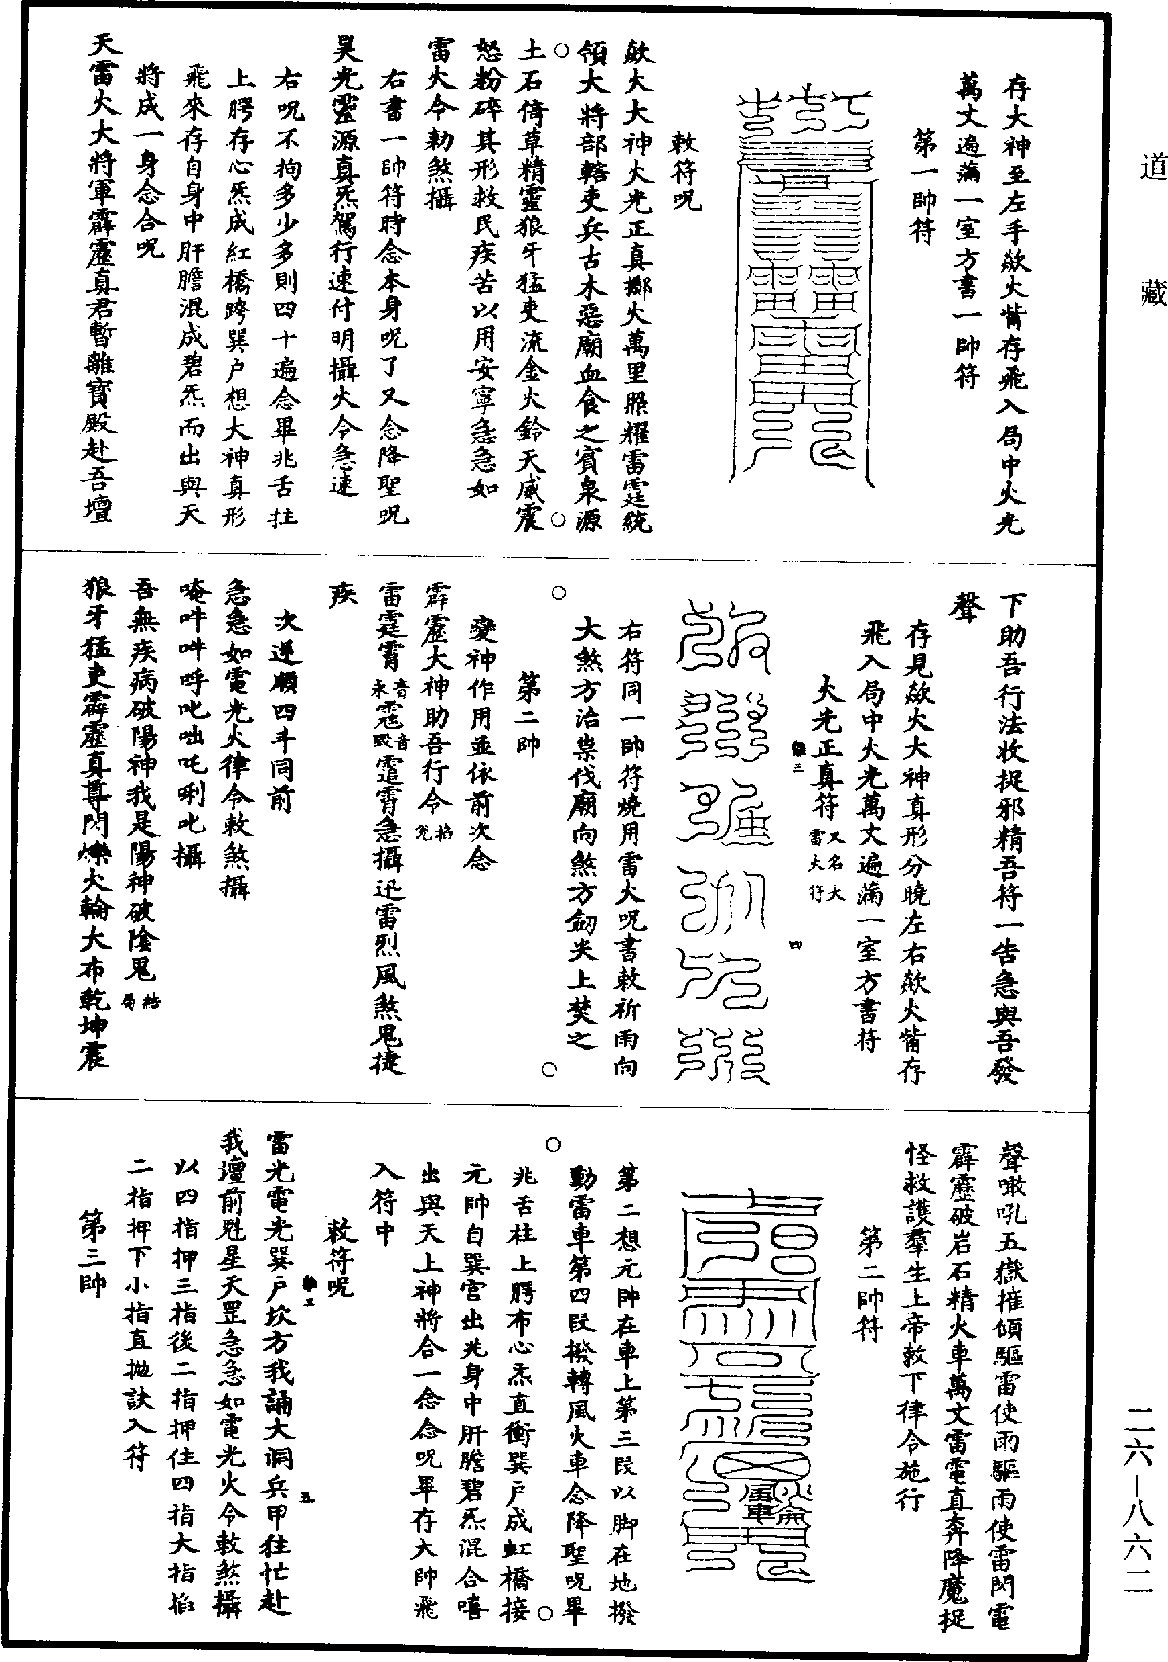 道藏
存大神至左手欻火觜存飛入局中火光
萬丈遍滿一室方書一帥符
第一帥符
敕符呪
欻火大神火光正真擲火萬里照耀雷霆統
領大將部轄吏兵古木惡廟血食之賓泉源
土石倚草精靈狼牙猛吏流金火鈴天威震
怒粉碎其形救民疾苦以用安寧急急如
雷火令勑煞攝
右書一帥符時念本身呪了又念降聖呪
昊光靈源真炁駕行速付明攝火令急速
右呪不拘多少多則四十遍念畢兆舌拄
上腭存心炁成紅橋跨巽户想大神真形
飛來存自身中肝膽混成碧炁而出與天
將成一身念合呪
天雷火大將軍霹靂真君暫離寶殿赴吾壇
下助吾行法收捉邪精吾符一告急與吾發
聲
存見欻火大神真形分曉左右欻火觜存
飛入局中火光萬丈遍滿一室方書符
火光正真符又名大雷火符
三
四
右符同一帥符燒用雷火呪書敕祈雨向
大煞方治祟伐廟向煞方劒尖上焚之
第二帥
變神作用並依前次念
霹靂大神助吾行令
雷霆霄音永㓂音毀䨓霄急攝迅雷烈風煞鬼捷
疾
次逆順四斗同前
急急如電光火律令敕煞攝
唵吽吽呼叱咄吒唎叱攝
吾無疾病破陽神我是陽神破陰鬼
狼牙猛吏霹靂真尊閃爍火輪大布乾坤震
聲噉吼五嶽摧傾驅雷使雨驅雨使雷閃電
霹靂破岩石精火車萬丈雷電直奔降魔捉
怪救護羣生上帝敕下律令施行
第二帥符
第二想元帥在車上第三段以脚在地撥
動雷車第四段撥轉風火車念降聖呪畢
兆舌柱上腭布心炁直衝巽户成虹橋接
元帥自巽宫出兆身中肝膽碧炁混合嘻
出與天上神將合一念念呪畢存大帥飛
入符中
敕符呪
五
雷光電光巽户坎方我誦大洞兵甲往忙赴
我壇前魁星天罡急急如電光火令敕煞攝
以四指押三指後二指押住四指大指掐
二指押下小指直抛訣入符
第三帥
二六—八六二